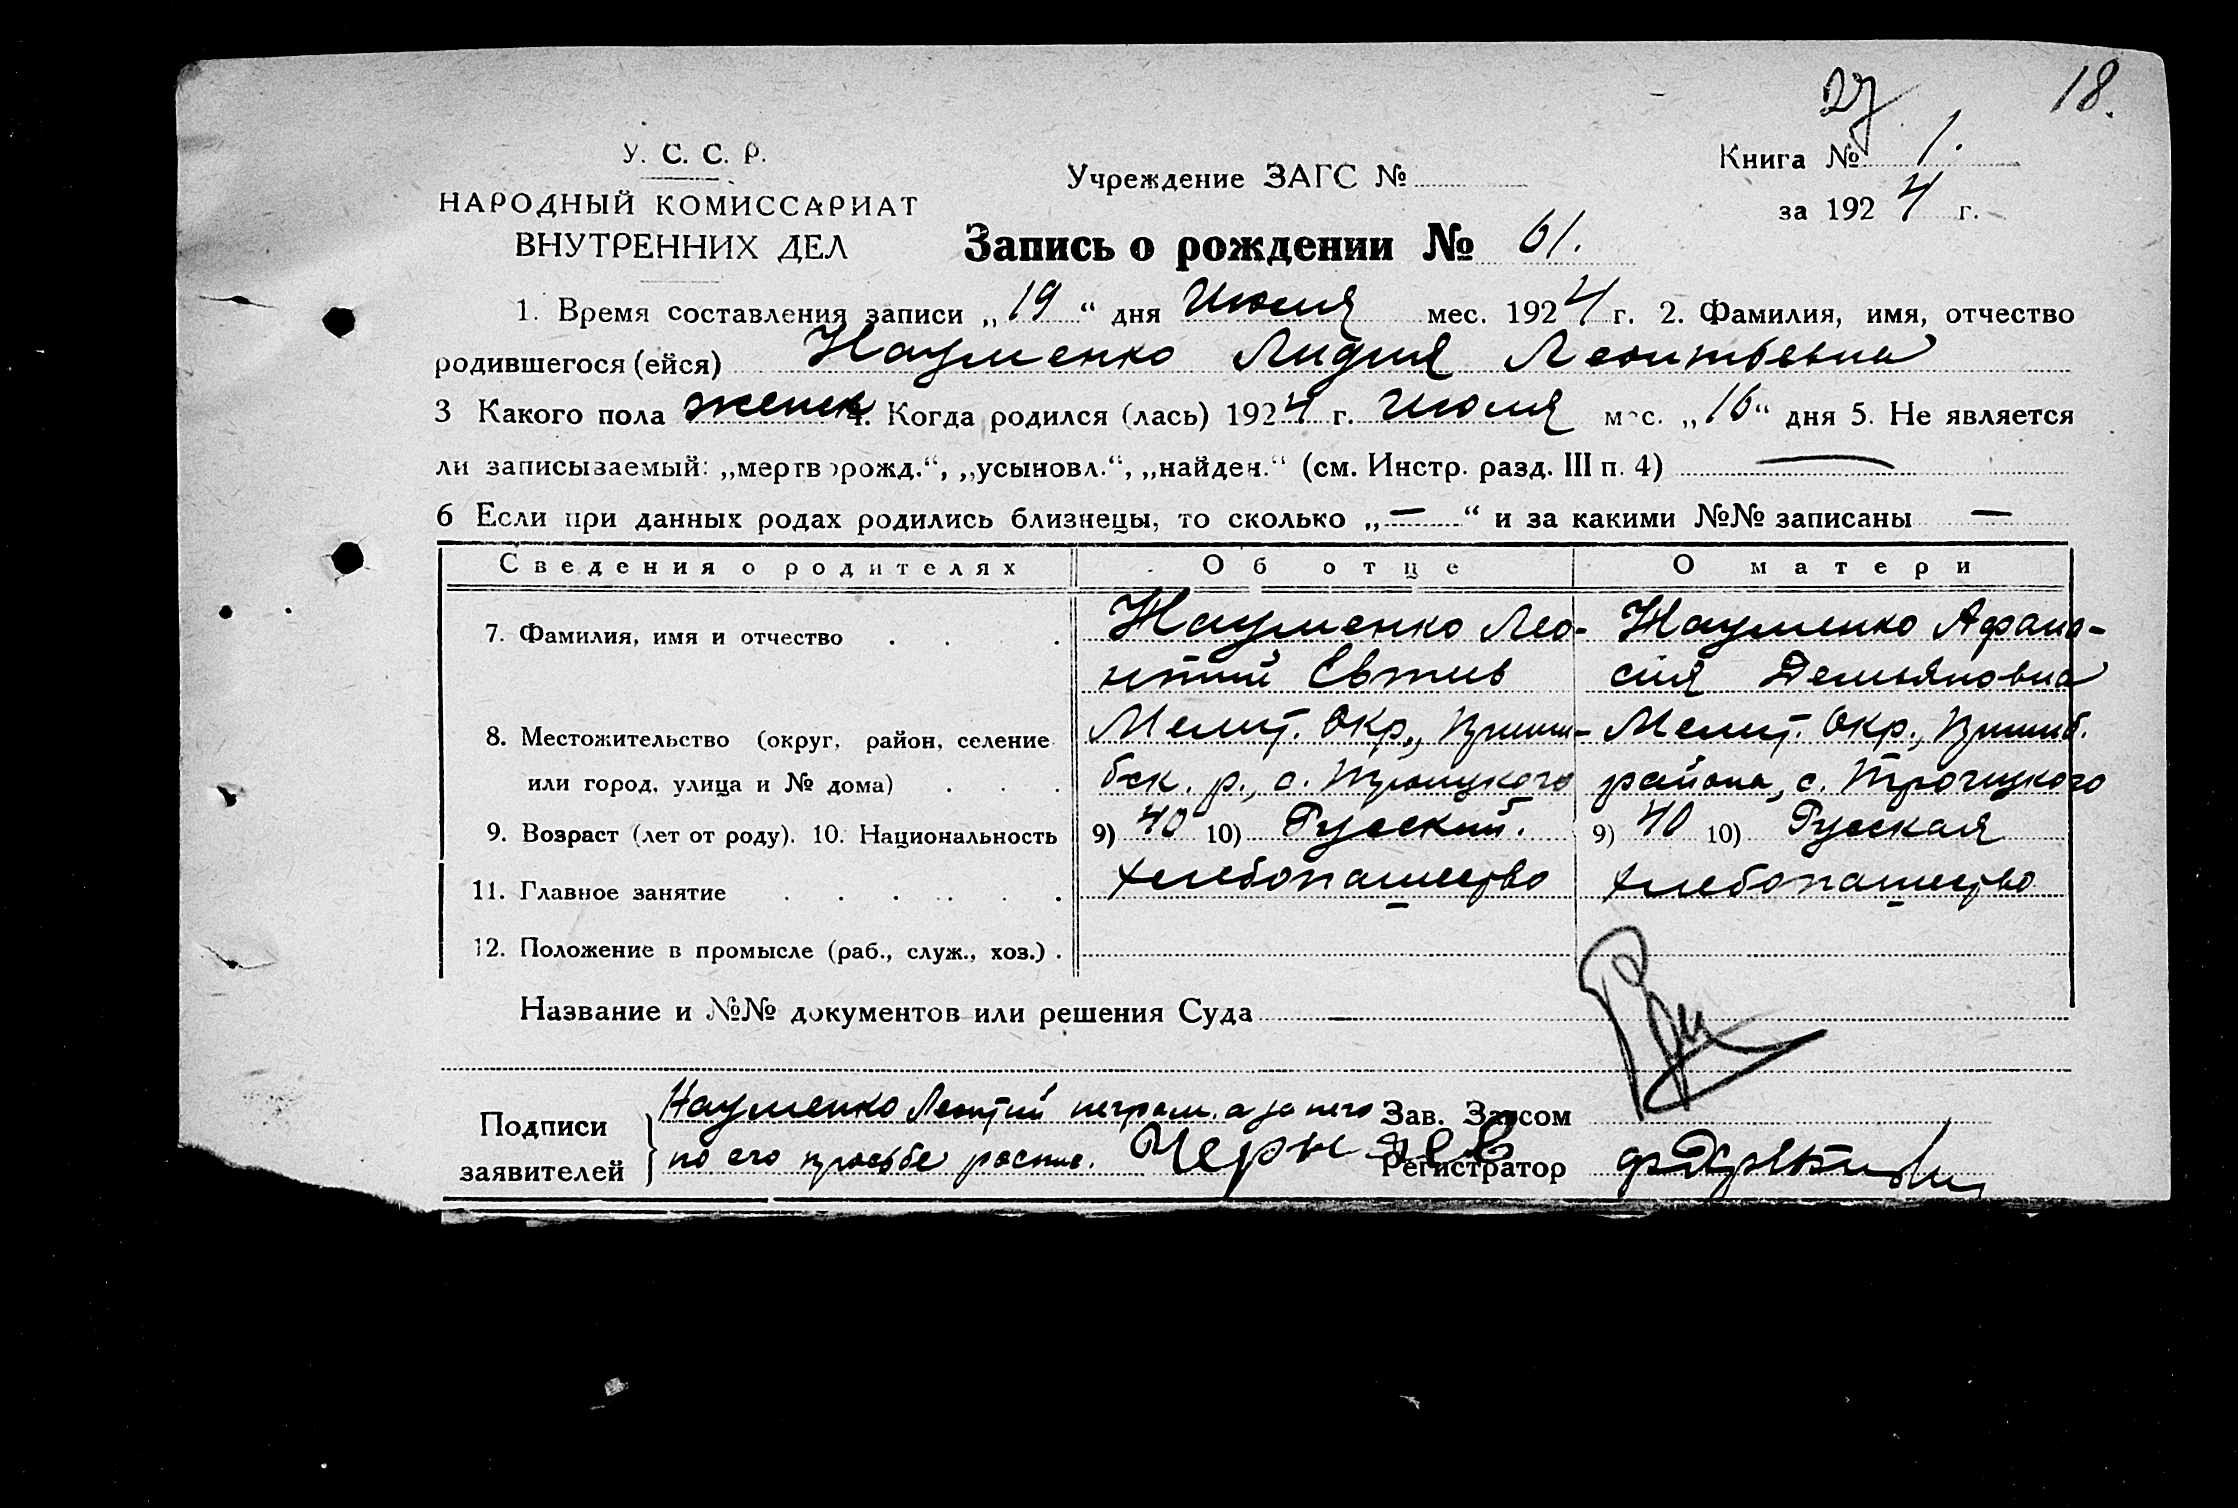 27 18.
У. С. С. Р.
НАРОДНЫЙ КОМИССАРИАТ
ВНУТРЕННИХ ДЕЛ
Учреждение ЗАГС №
Книга № 1.
за 1924 г.
Запись о рождении № 61.
1. Время составления записи „19“ дня Июля мес. 1924 г. 2. Фамилия, имя, отчество
родившегося (ейся) Науменко Лидия Леонтьевна
3 Какого пола женск 4. Когда родился (лась) 1924 г. Июля мес. „16“ дня 5. Не является
ли записываемый: „мертворожд.“, „усыновл.“, „найден.“ (см. Инстр. разд. III п. 4) —
6 Если при данных родах родились близнецы, то сколько „—“ и за какими №№ записаны —
Сведения о родителях Об отце О матери
7. Фамилия, имя и отчество . . . Науменко Лео- Науменко Афана-
нтий Евтиев сия Демьяновна
8. Местожительство (округ, район, селение Мелит. Окр., Приши- Мелит. Окр., Пришиб.
или город, улица и № дома) . . . бск. р., с. Троицкого района, с. Троицкого
9. Возраст (лет от роду). 10. Национальность 9) 40 10) Русский. 9) 40 10) Русская
11. Главное занятие . . . . . . хлебопашество хлебопашество
12. Положение в промысле (раб., служ., хоз.) .
Название и №№ документов или решения Суда —
Подписи
заявителей
Науменко Леонтий неграм. а за него
по его просьбе распис. Черняев
Зав. Загсом
Регистратор